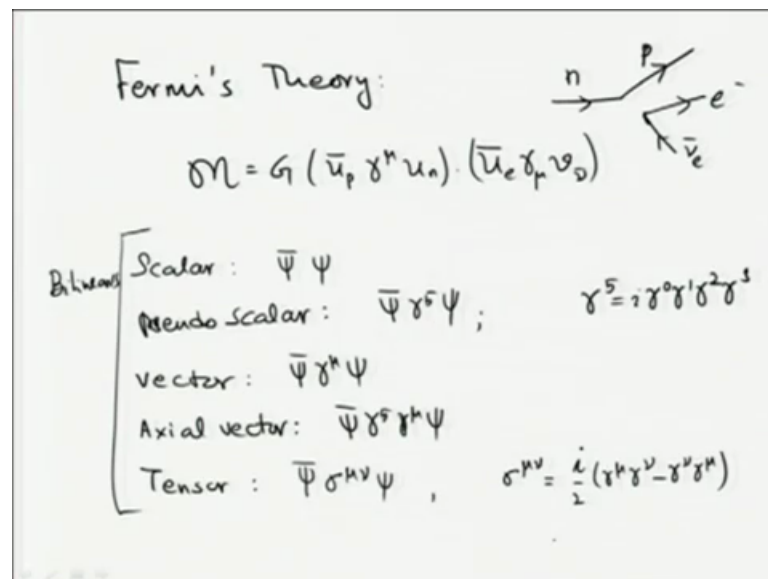 Fermi's Theory:
n
p
e⁻
ν̄_e
𝔐 = G (ū_p γ^μ u_n) · (ū_e γ_μ v_ν)
Bilinears
Scalar : ψ̄ ψ
Pseudo scalar : ψ̄ γ⁵ ψ ; γ⁵ = i γ⁰γ¹γ²γ³
Vector : ψ̄ γ^μ ψ
Axial vector : ψ̄ γ⁵ γ^μ ψ
Tensor : ψ̄ σ^{μν} ψ , σ^{μν} = i/2 (γ^μ γ^ν − γ^ν γ^μ)